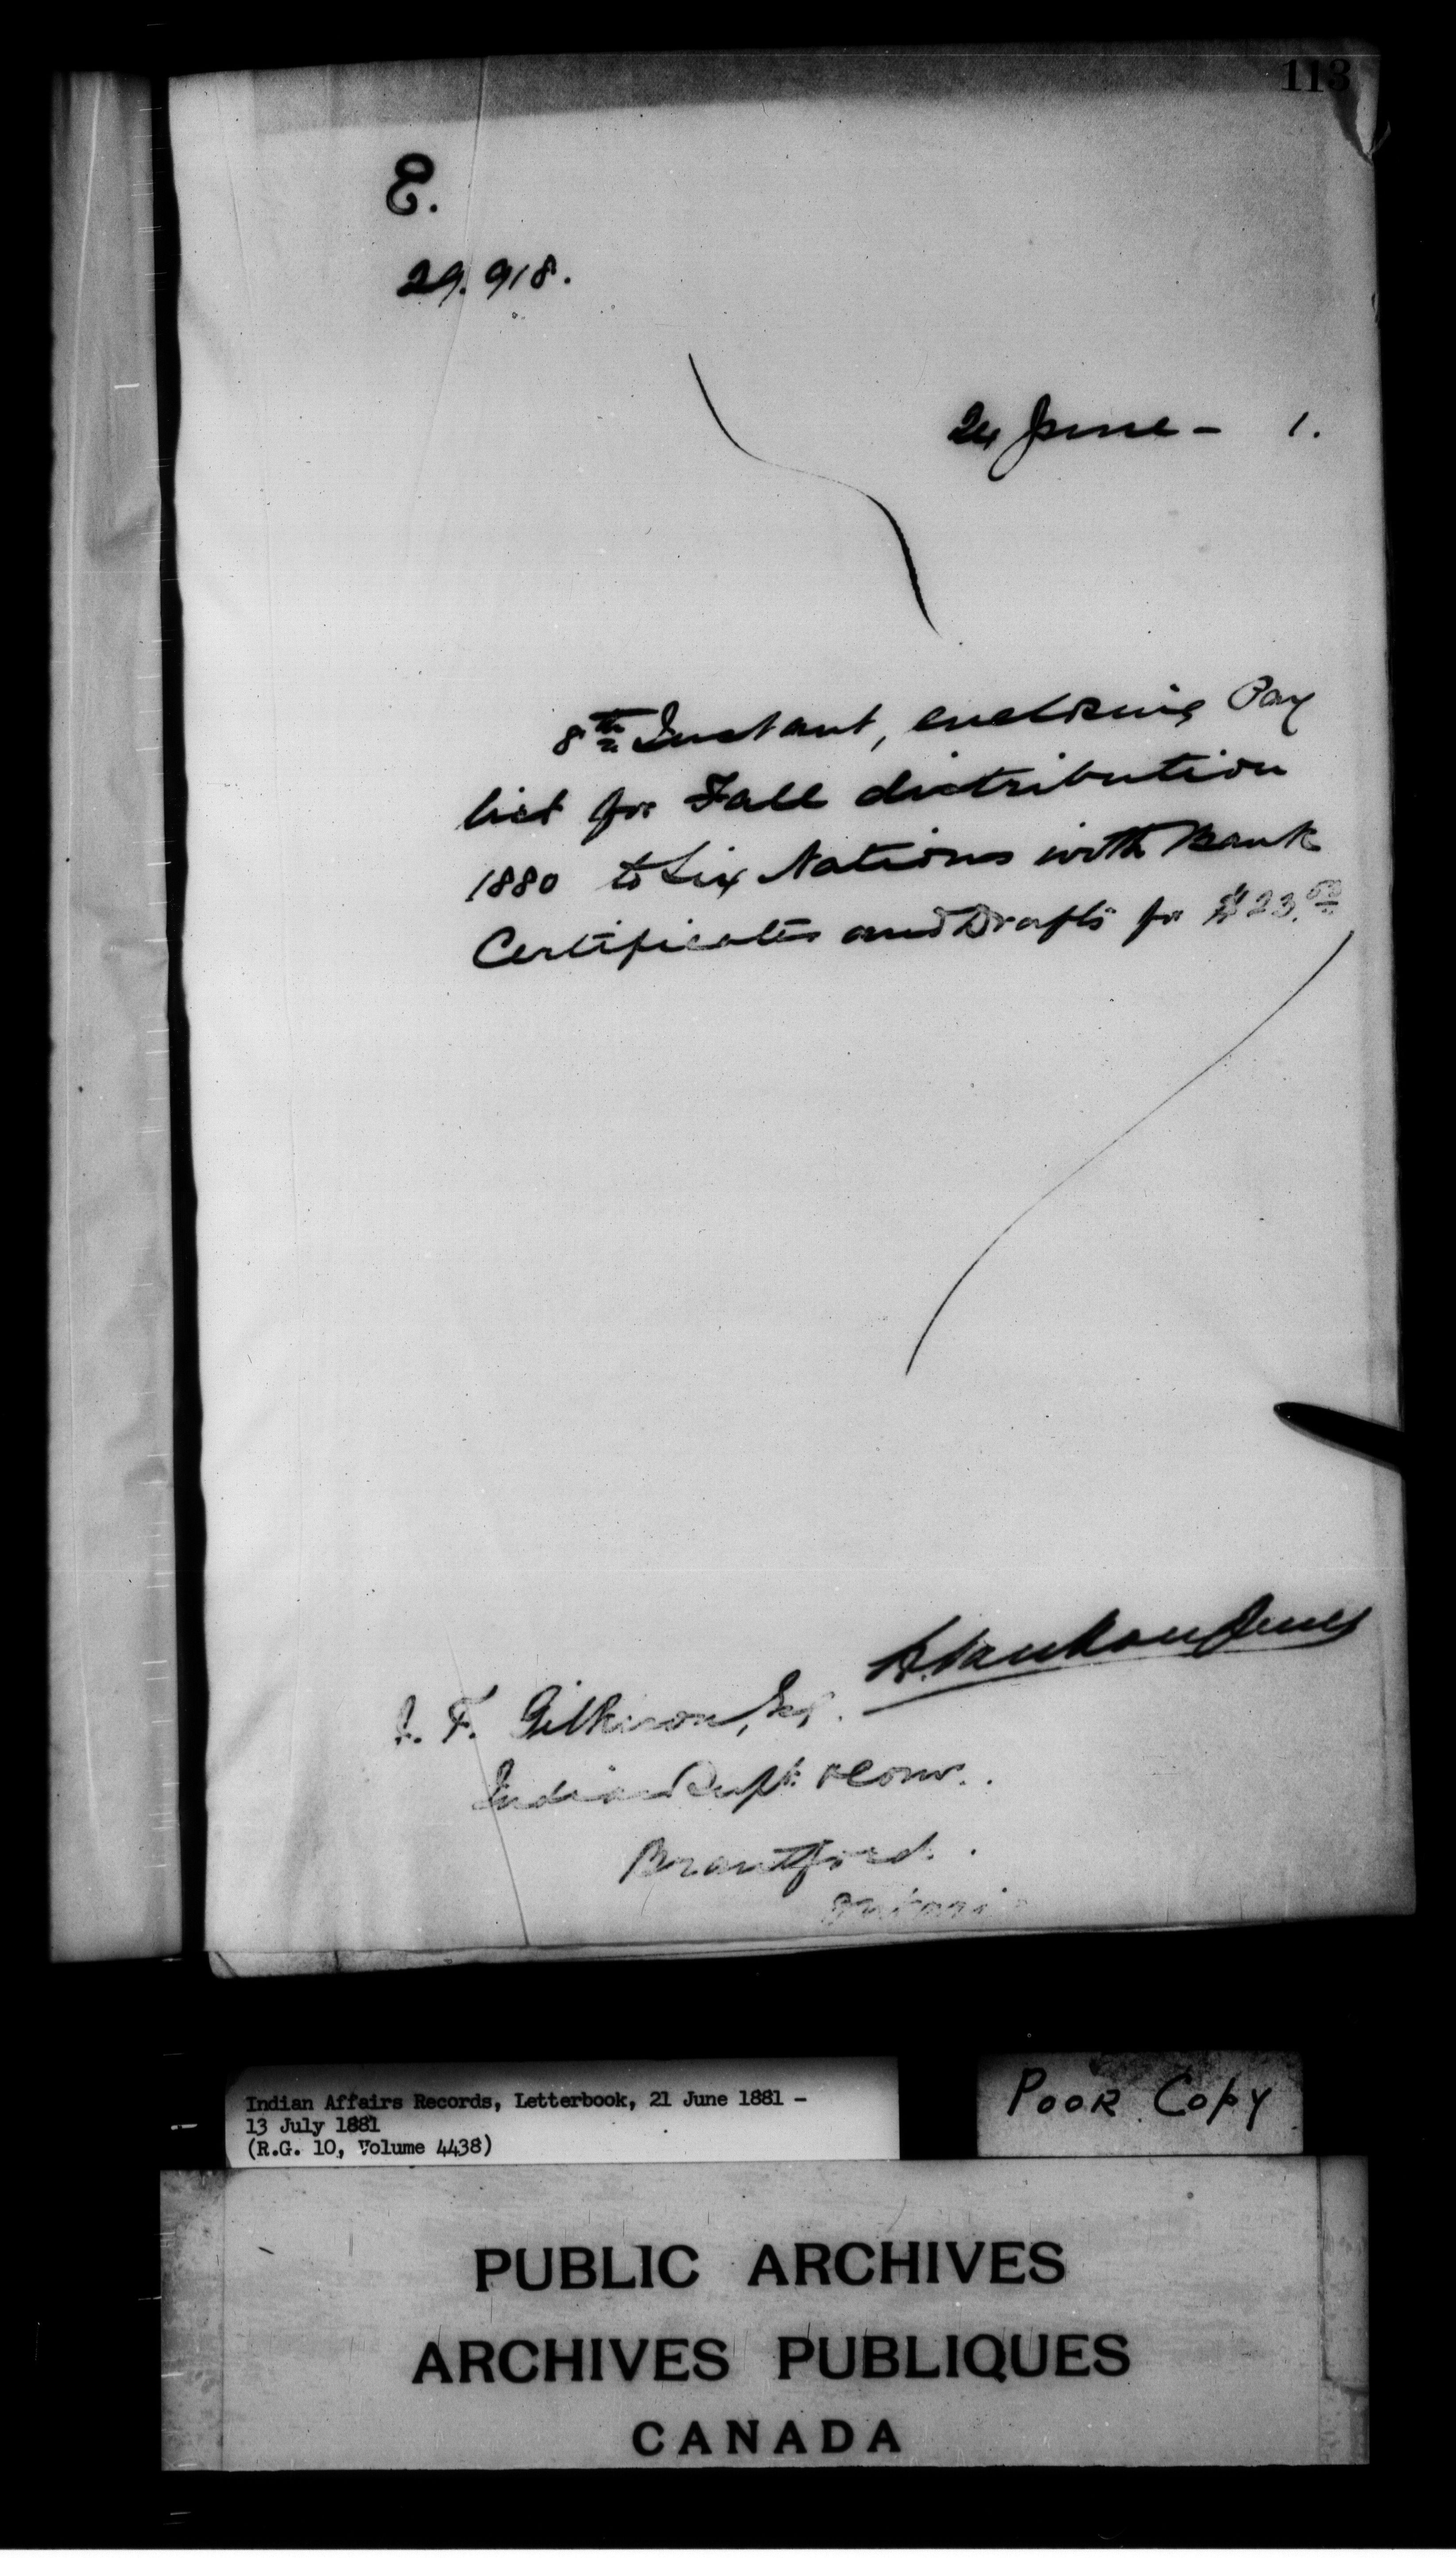 113
E.
29.918.
24 June - 1.
8th Instant, enclosing Pay
list for Fall distribution
1880 to Six Nations with Bank
Certificates and Drafts for $23.50
J. T. Gilkison, Esq.
Indian Supt. & Comr.
Brantford.
Ontario
Indian Affairs Records, Letterbook, 21 June 1881 -
13 July 1881
(R.G. 10, Volume 4438)
POOR COPY
PUBLIC ARCHIVES
ARCHIVES PUBLIQUES
CANADA